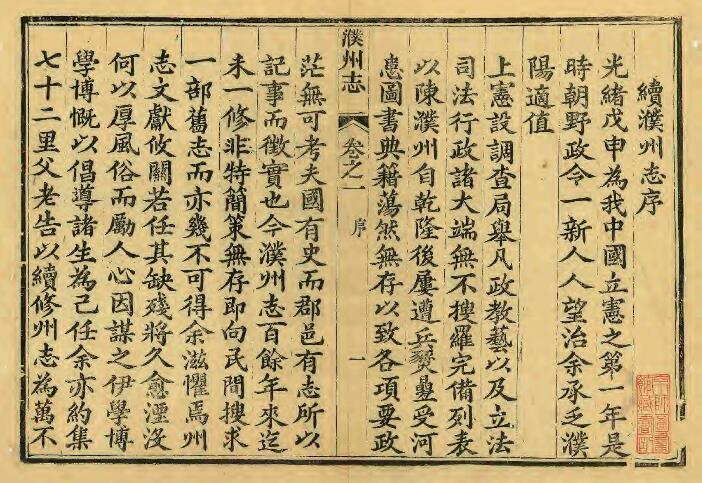 續濮州志序
光緒戊申為我中國立憲之第一年是
時朝野政令一新人人望治余承乏濮
陽適值
上憲設調查局舉凡政教藝以及立法
司法行政諸大端無不搜羅完備列表
以陳濮州自乾隆後屢遭兵燹疊受河
患圖書典籍蕩然無存以致各項要政
濮州志
卷之一
序
一
茫無可考夫國有史而郡邑有志所以
記事而徵實也今濮州志百餘年來迄
未一修非特簡策無存即向民間搜求
一部舊志而亦幾不可得余滋懼焉州
志文獻攸關若任其缺殘將久愈湮没
何以厚風俗而勵人心因謀之伊學博
學博慨以倡導諸生為己任余亦約集
七十二里父老告以續修州志為萬不